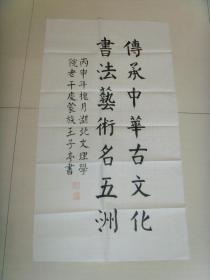 傳承中華古文化
書法藝術名五洲
丙申年槐月湖北文理學
院老干處蒙族王子本書